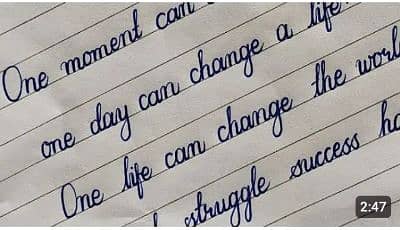 One moment can
one day can change a life
One life can change the
struggle success
2:47